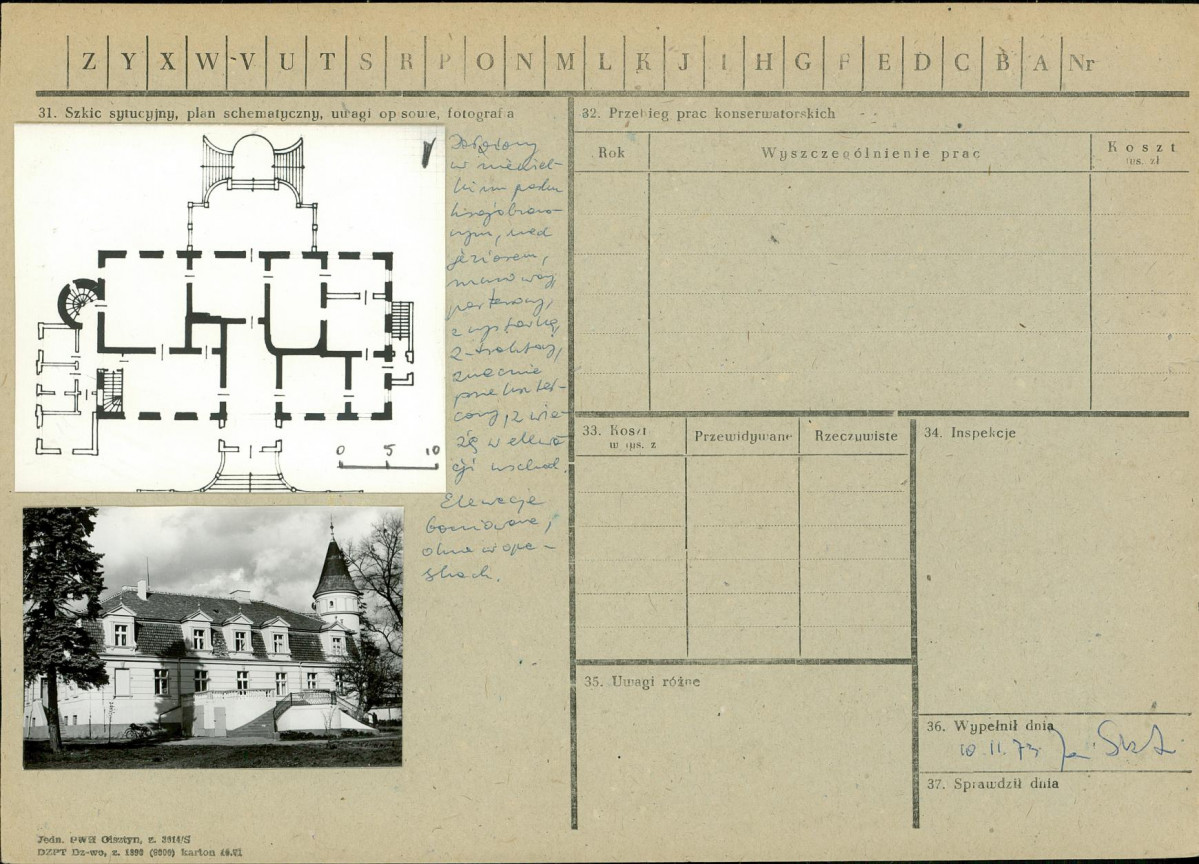 Z Y X W V U T S R P O N M L K J I H G F E D C B A Nr
31. Szkic sytucyjny, plan schematyczny, uwagi opisowe, fotografia
Położony
w niewiel-
kim parku
krajobrazo-
wym, nad
jeziorem,
murowany,
parterowy,
z wystawką,
2-traktowy,
znacznie
przekształ-
cony, z wie-
żą w elewa-
cji wschod.
Elewacje
boniowane,
okna w opa-
skach.
0 5 10
32. Przebieg prac konserwatorskich
Rok
Wyszczególnienie prac
Koszt
tys. zł
33. Koszt
w tys. z
Przewidywane
Rzeczywiste
34. Inspekcje
35. Uwagi różne
36. Wypełnił dnia
10.11.73
37. Sprawdził dnia
Jedn. PWH Olsztyn, z. 3614/S
DZPT Dz-wo, z. 1390 karton